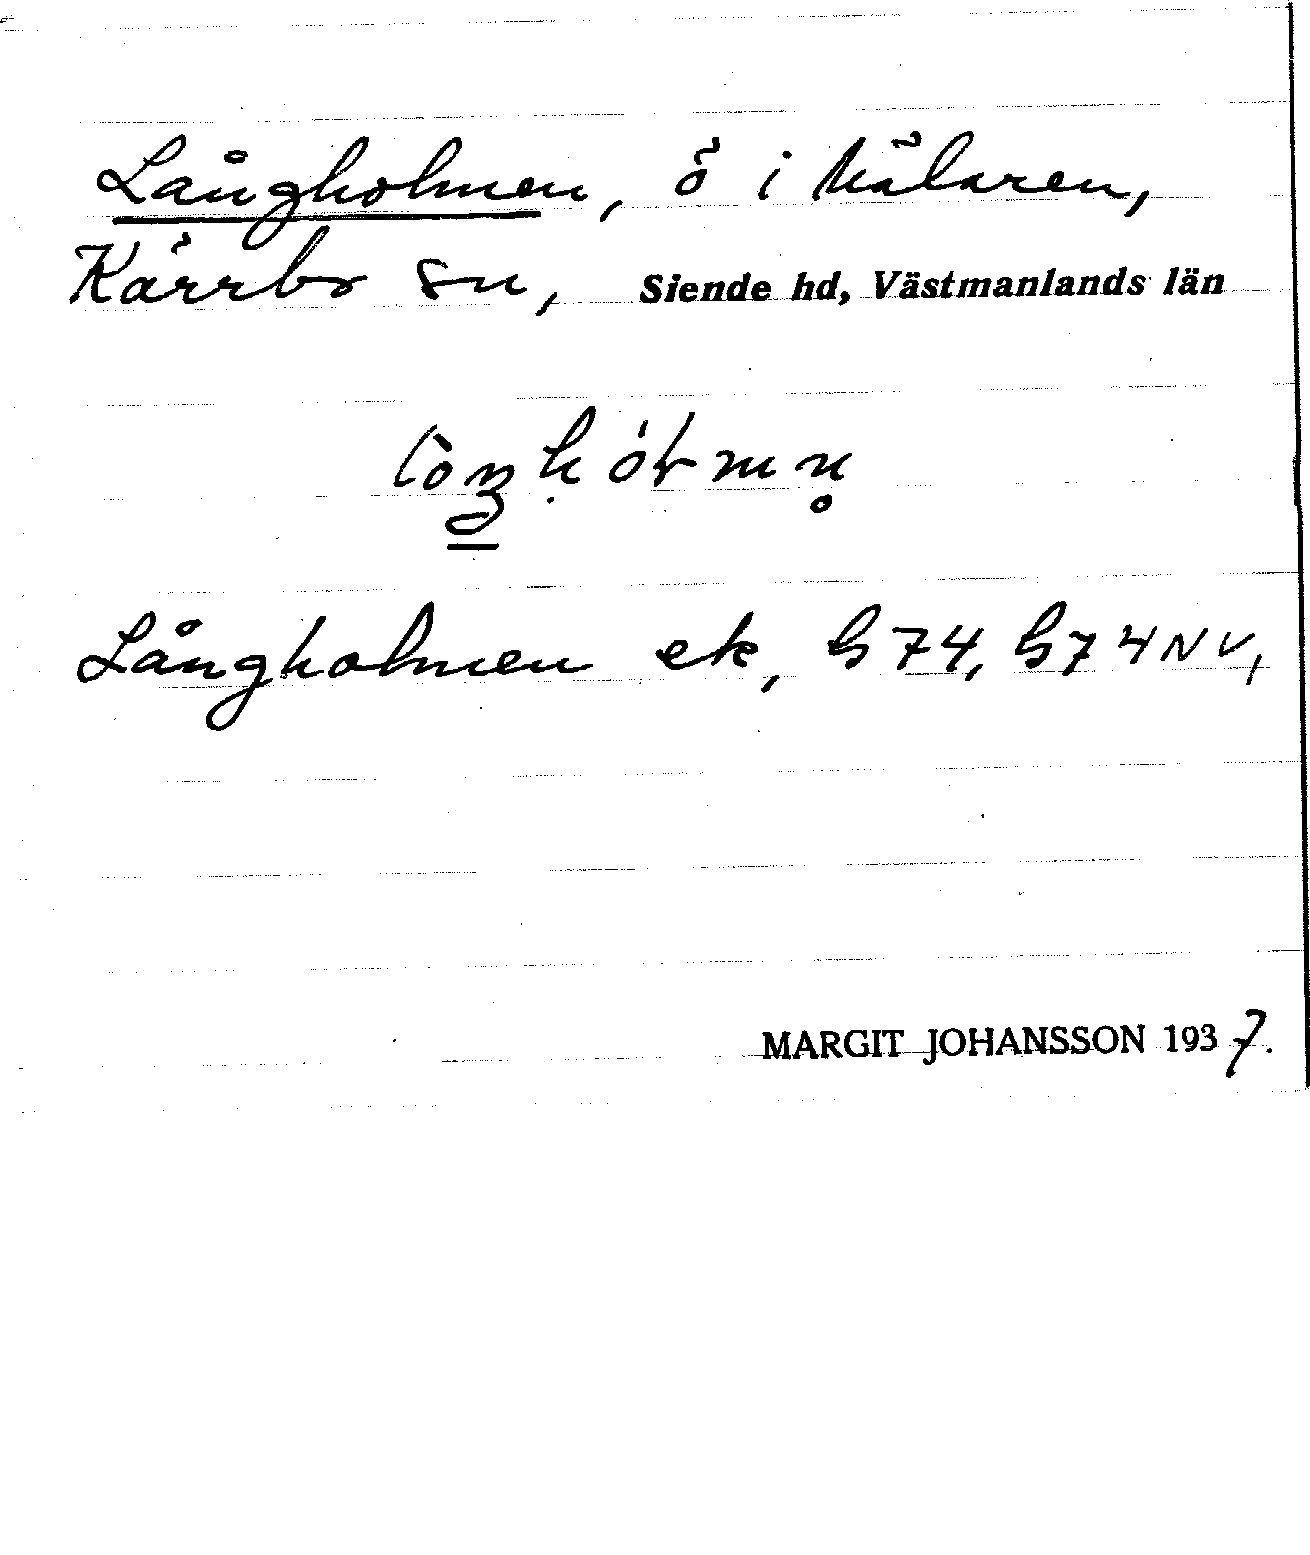 Långholmen, ö i Mälaren,
Kärrbo sn, Siende hd, Västmanlands län
Långholmen ek, G74, G74NV,
MARGIT JOHANSSON 1937.